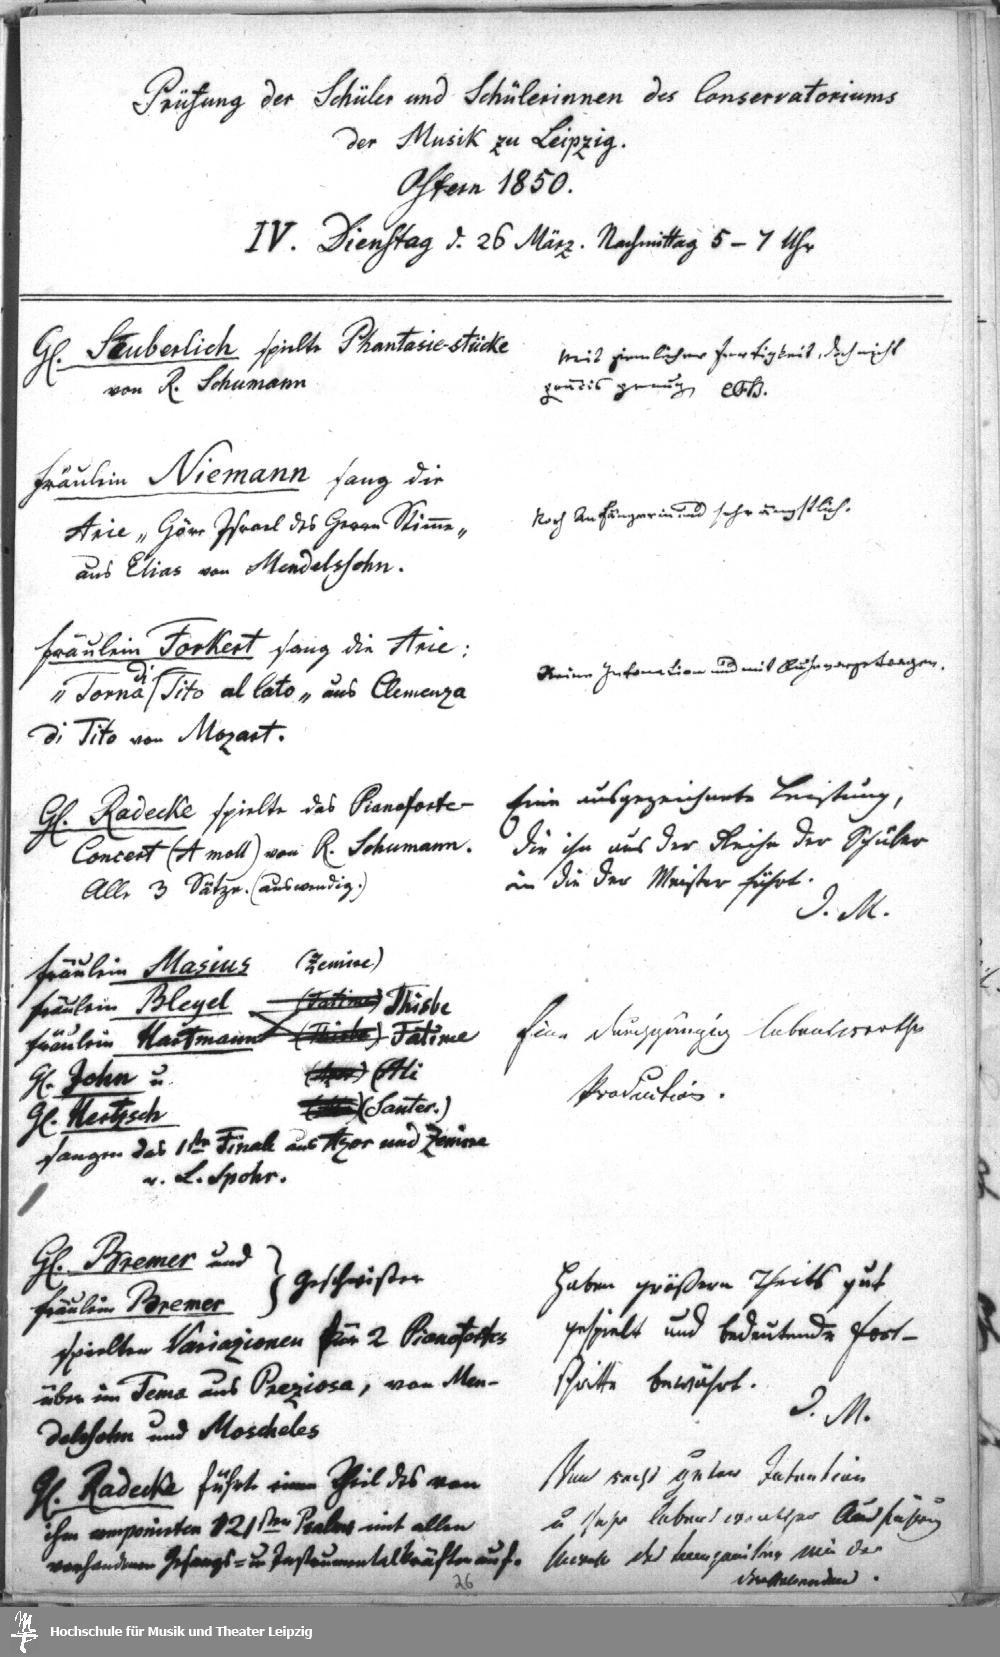 Prüfung der Schüler und Schülerinnen des Conservatoriums
der Musik zu Leipzig.
Ostern 1850.
IV. Dienstag d. 26 März. Nachmittag 5 – 7 Uhr
H. Sauberlich spielte Phantasie-stücke
von R. Schumann
Mit ziemlicher Fertigkeit, doch nicht
präcis genug, CFB.
Fräulein Niemann sang die
Arie „Höre Israel des Herrn Stimme„
aus Elias von Mendelssohn.
Noch Anfängerin und sehr ängstlich.
Fräulein Forkert sang die Arie:
„Torna di Tito al lato„ aus Clemenza
di Tito von Mozart.
Reine Intonation und mit Ruhe vorgetragen.
H. Radecke spielte das Pianoforte-
Concert (A moll) von R. Schumann.
Alle 3 Sätze. (auswendig.)
Eine ausgezeichnete Leistung,
die ihn aus der Reihe der Schüler
in die der Meister führt.
I. M.
Fräulein Masius (Zemire)
Fräulein Bleyel (Fatime) Thisbe
Fräulein Hartmann (Thisbe) Fatime
H. John u (Azor) (Ali
H. Hertzsch (Ali) (Sander.)
sangen das 1ste Finale aus Azor und Zemire
v. L. Spohr.
Eine durchgängig lobenswerthe
Production.
H. Bremer und
Fräulein Bremer } Geschwister
spielten Variazionen für 2 Pianofortes
über ein Tema aus Preziosa, von Men-
delssohn und Moscheles
Haben größern Theils gut
gespielt und bedeutende Fort-
schritte bewährt.
I. M.
H. Radecke führte einen Theil des von
ihm componirten 121sten Psalms mit allen
vorhandenen Gesangs- u Instrumentalkräften auf.
Von recht guter Intention
u sehr lobenswerther Ausführung
des Componisten wie der
26
Hochschule für Musik und Theater Leipzig